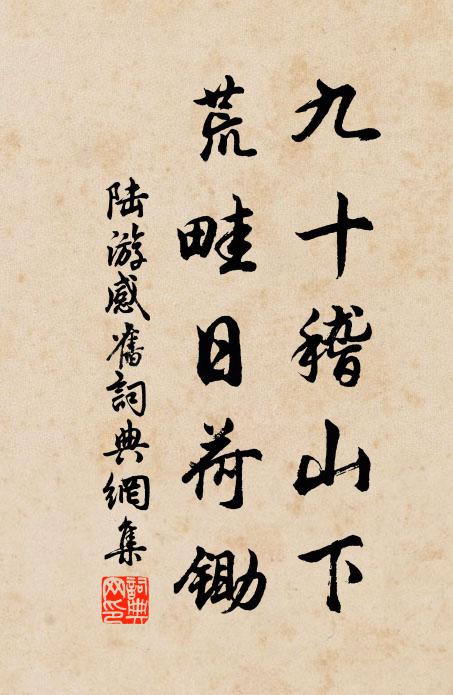 九十稽山下
荒畦日荷鋤
陆游感舊詞典網集
詞典网印